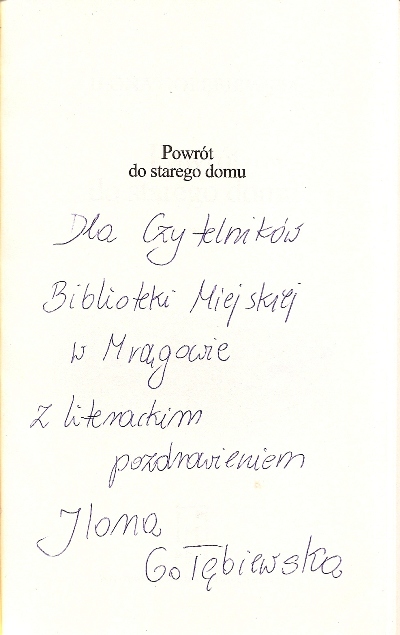 Powrót
do starego domu
Dla Czytelników
Biblioteki Miejskiej
w Mrągowie
z literackim
pozdrowieniem
Ilona
Gołębiewska